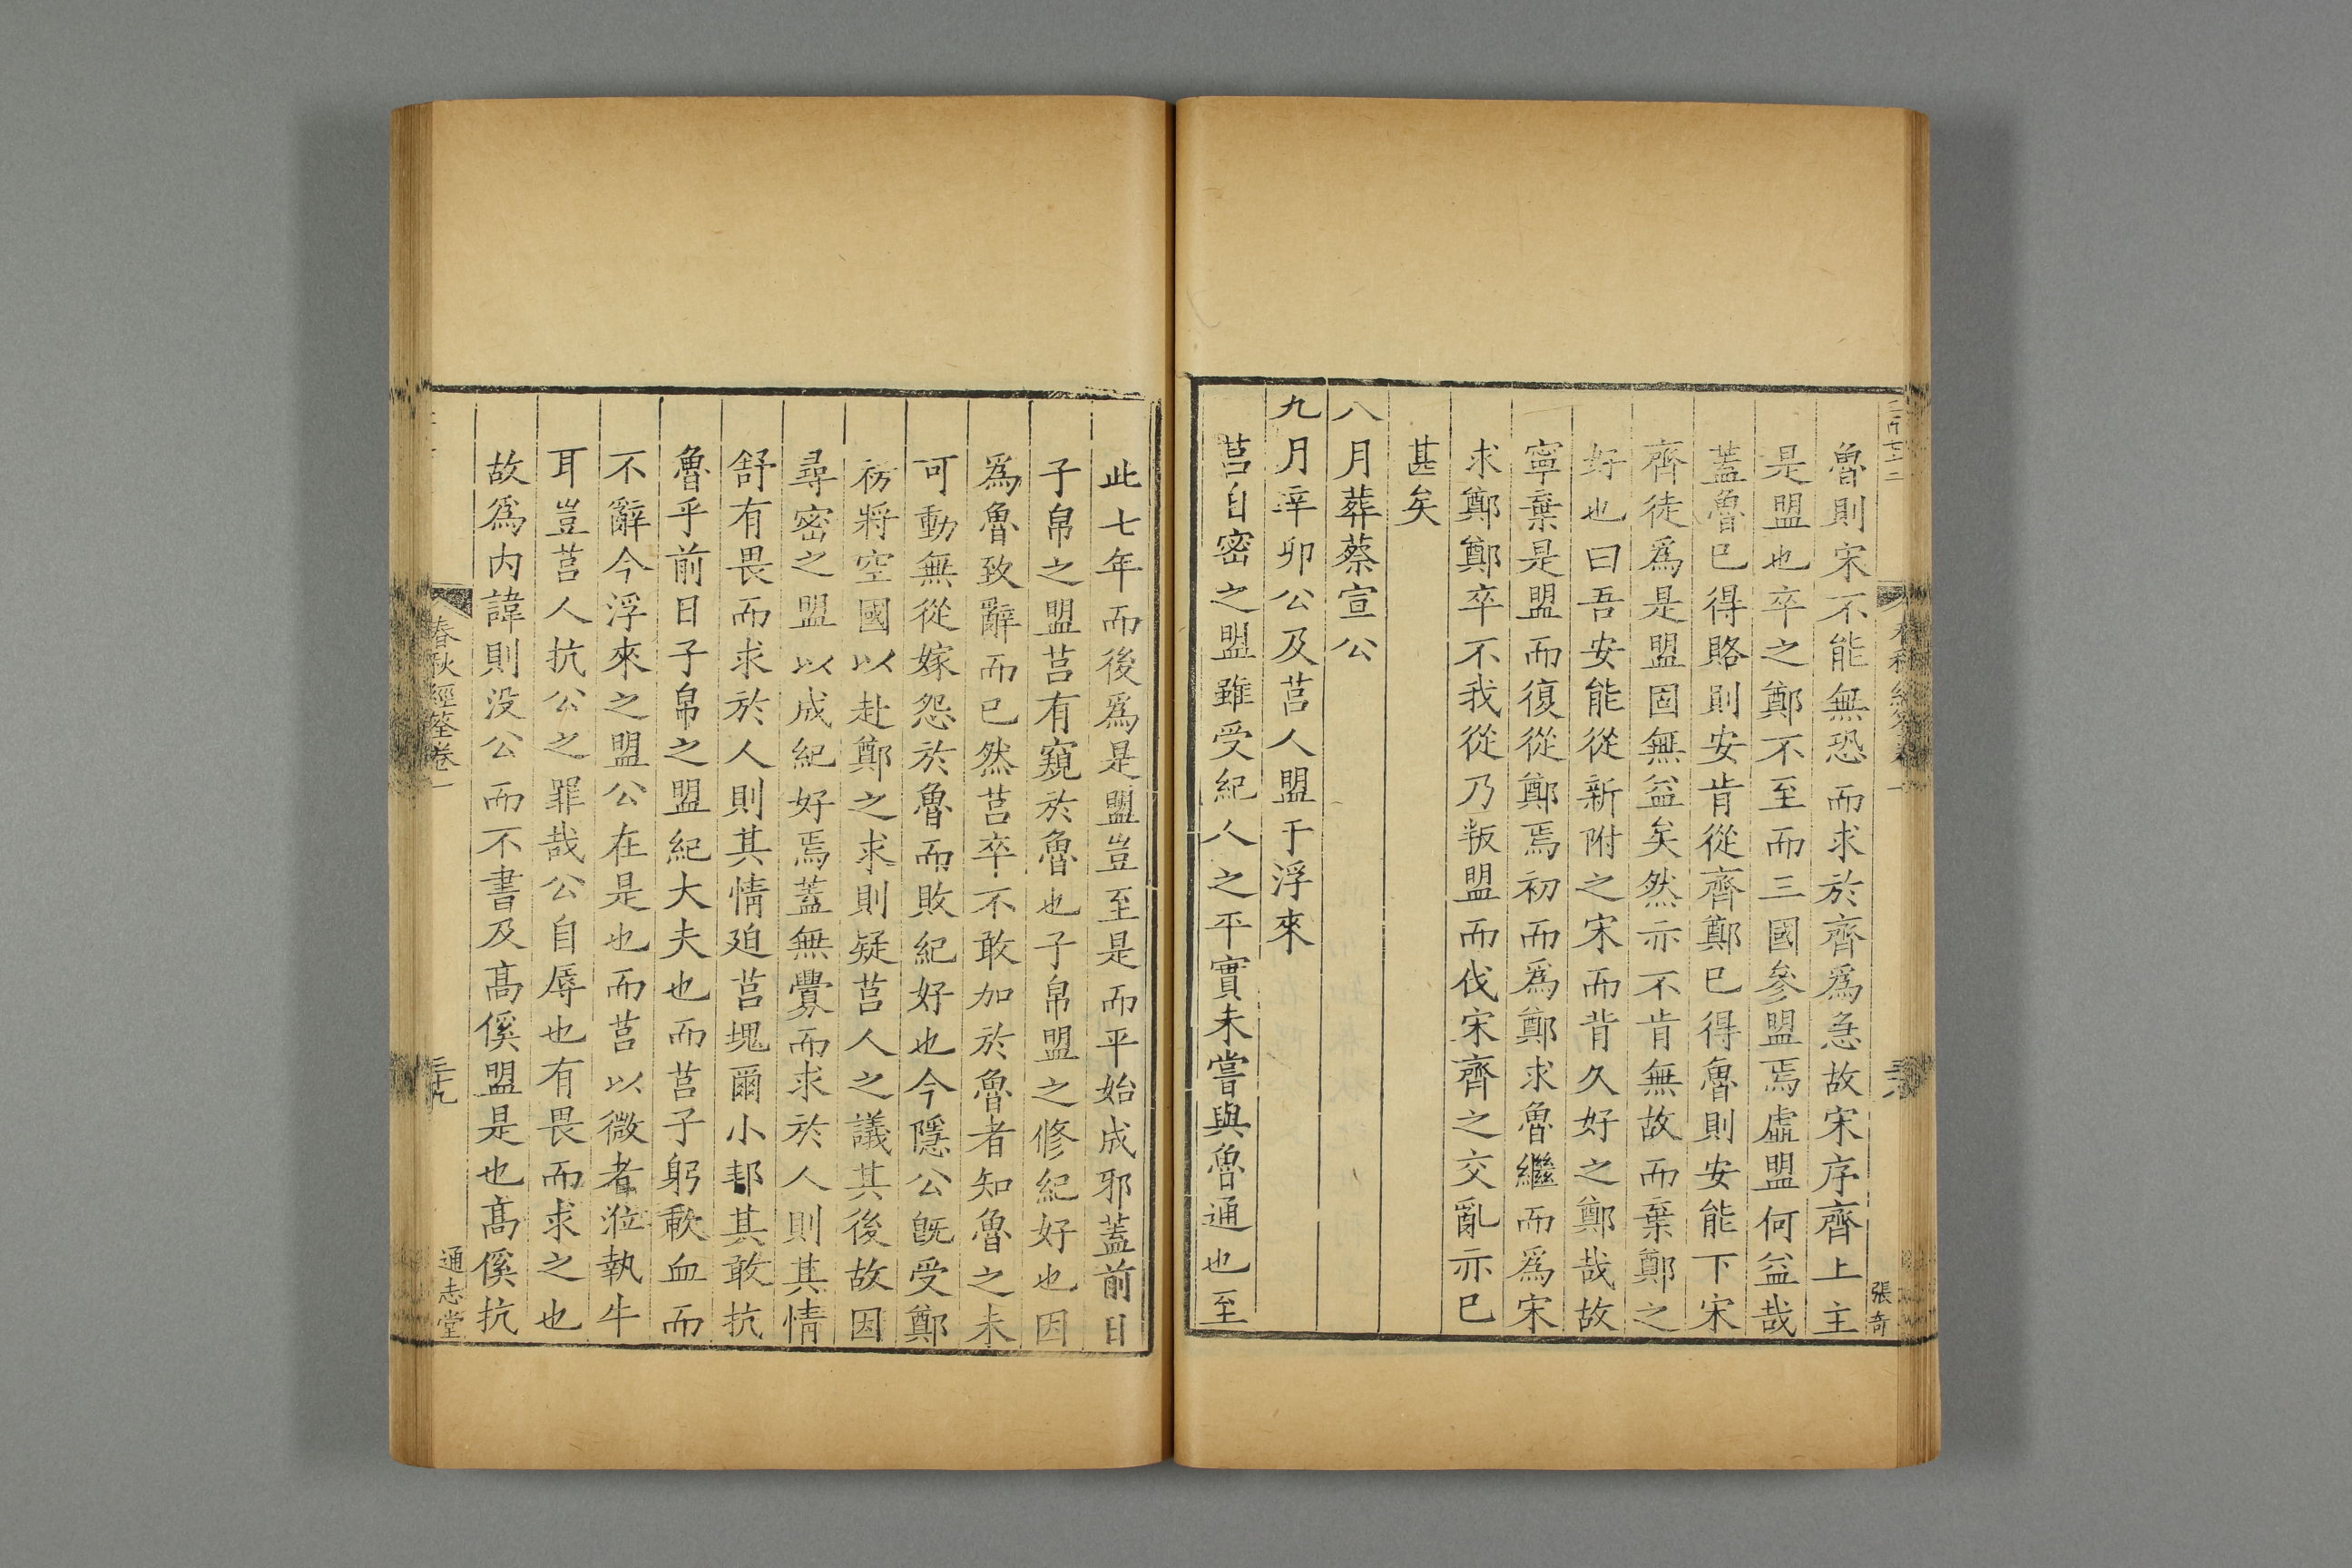 魯則宋不能無恐而求於齊爲急故宋序齊上主
是盟也卒之鄭不至而三國參盟焉虛盟何益哉
蓋魯已得賂則安肯從齊鄭已得魯則安能下宋
齊徒爲是盟固無益矣然亦不肯無故而棄鄭之
好也曰吾安能從新附之宋而背久好之鄭哉故
寧棄是盟而復從鄭焉初而爲鄭求魯繼而爲宋
求鄭鄭卒不我從乃叛盟而伐宋齊之交亂亦已
甚矣
八月葬蔡宣公
九月辛卯公及莒人盟于浮來
莒自密之盟雖受紀人之平實未嘗與魯通也至
張奇
此七年而後爲是盟豈至是而平始成邪蓋前日
子帛之盟莒有窺於魯也子帛盟之修紀好也因
爲魯致辭而已然莒卒不敢加於魯者知魯之未
可動無從嫁怨於魯而敗紀好也今隱公旣受鄭
祊將空國以赴鄭之求則疑莒人之議其後故因
尋密之盟以成紀好焉蓋無釁而求於人則其情
舒有畏而求於人則其情廹莒塊爾小邦其敢抗
魯乎前日子帛之盟紀大夫也而莒子躬歃血而
不辭今浮來之盟公在是也而莒以微者涖執牛
耳豈莒人抗公之罪哉公自辱也有畏而求之也
故爲内諱則没公而不書及高傒盟是也高傒抗
春秋經筌卷一
三十九
通志堂